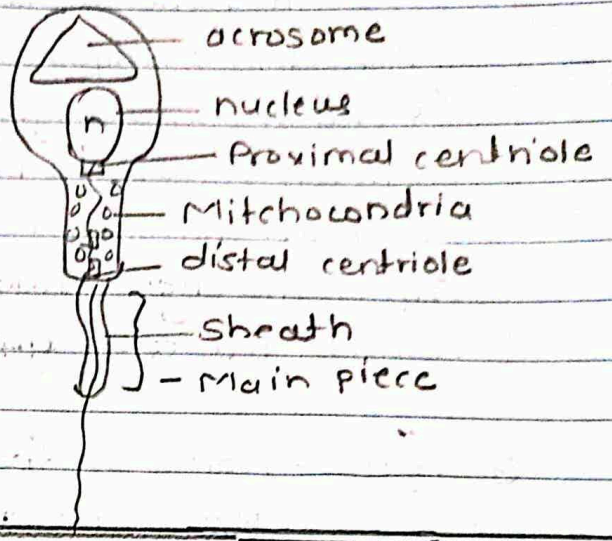 acrosome
n
nucleus
Proximal centriole
Mitchocondria
distal centriole
sheath
- Main piece